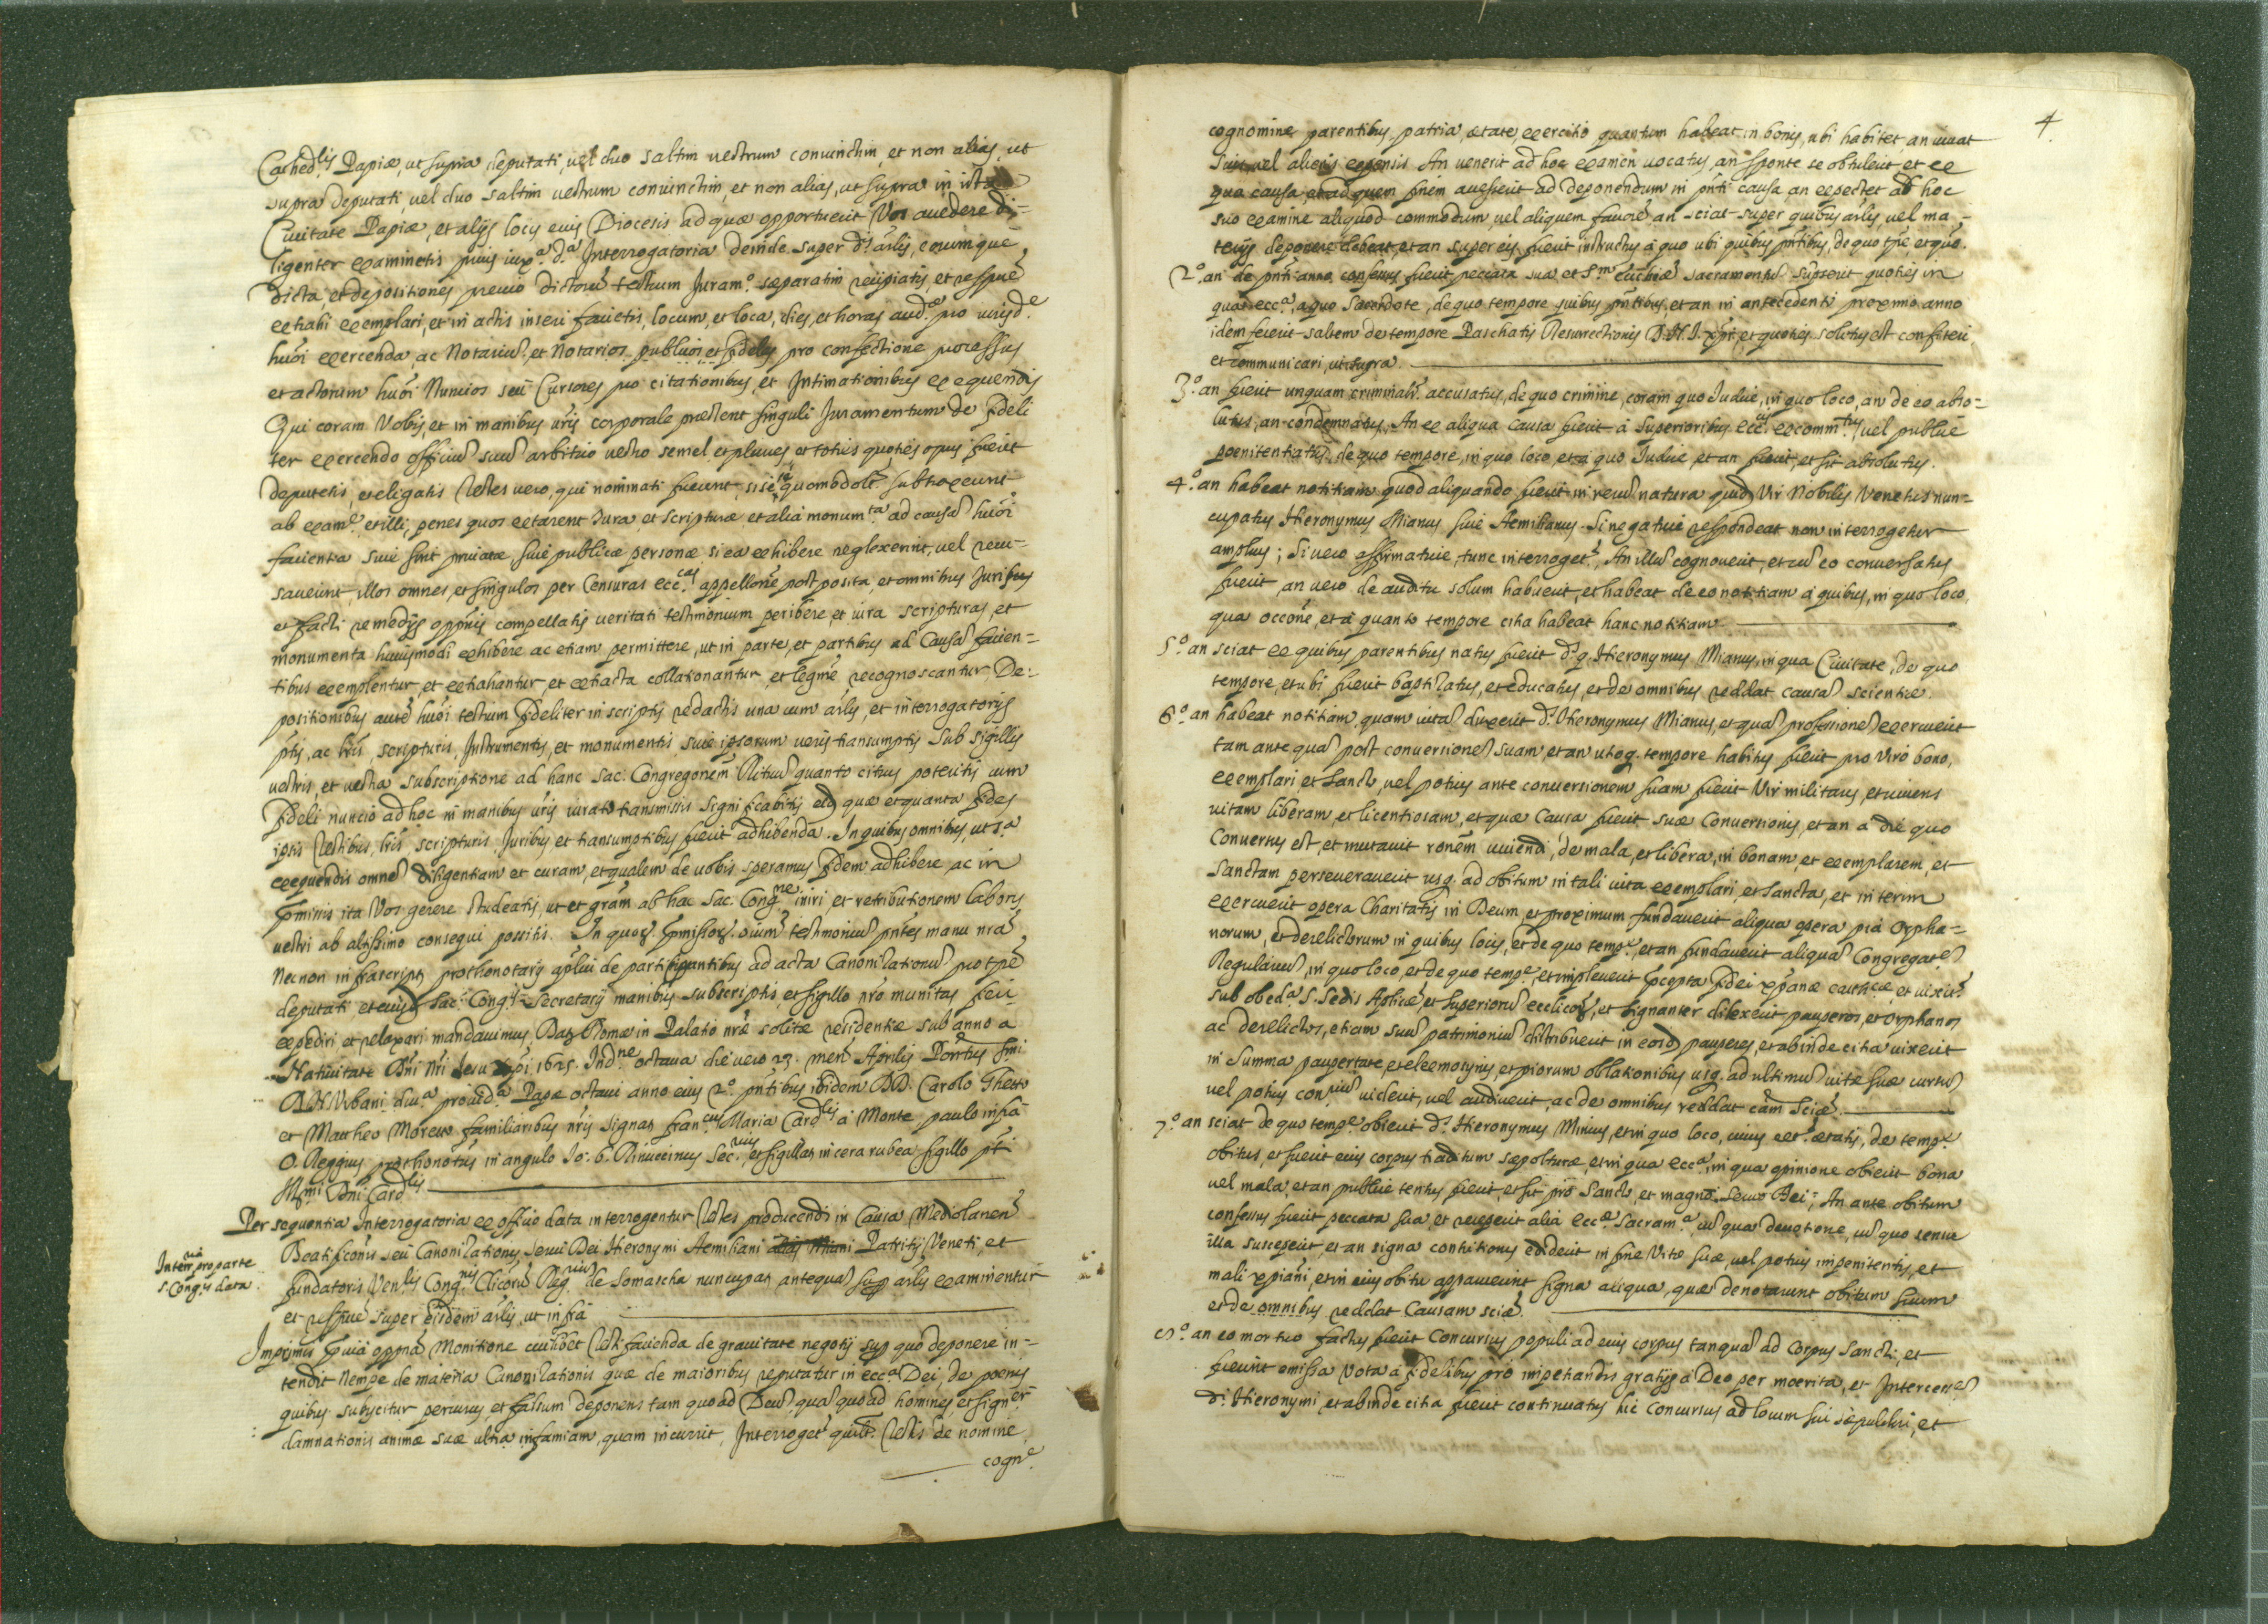 Cathed.lis Papiæ, ut supra deputati, vel duo saltim vestrum coniunctim, et non alias, ut
supra deputati, vel duo saltim vestrum coniunctim, et non alias, ut supra in ista
Civitate Papiæ, et alijs locis eius Diocesis ad quæ opportuerit Vos accedere di-
ligenter examinetis prius iuxa. d.a Interrogatoria deinde super ds. arlis, eorumque
dicta, et depositiones previo dictorū testium Juram.o separatim recipiatis, et respue
extrahi exemplari, et in actis inseri faciatis, locum, et loca, dies, et horas aud.æ pro iurisd.e
huōi exercenda, ac Notariū, et Notarios publicos et fideles pro confectione processus
et actorum huōi Nuncios seu Cursores pro citationibus, et Intimationibus exequendis
Qui coram Vobis, et in manibus vris corporale præstent singuli Juramentum de fideli
ter exercendo officiū suū arbitrio vestro semel et plures et toties quoties opus fuerit
deputetis, et eligatis Testes vero, qui nominati fuerint, si se quomodolt subtraxerint
ab exame. et illi, penes quos extarent Jura, et scripturæ et alia monum.ta ad causā huōi
facientia sive sint privatæ, sive publicæ personæ si ea exhibere neglexerint, vel recu-
saverint, illos omnes, et singulos per Censuras ecc.cas appellone postposita, et omnibus Juribus
et facti remedijs oppnis compellatis veritati testimonium peribere, et iura scripturas, et
monumenta huiusmodi exhibere ac etiam permittere, ut in parte, et partibus ad Causā facien-
tibus exemplentur, et extrahantur, et extracta collationantur, et legme recognoscantur, De-
positionibus autē huōi testium fideliter in scriptis redactis una cum arlis, et interrogatorijs
ptis, ac lris, scripturis, Instrumentis, et monumentis sive ipsorum veris transumptis sub sigillis
vestris, et vestra subscriptione ad hanc Sac. Congregonem Rituū quanto citius poteritis cum
fideli nuncio ad hoc in manibus vris iurato transmissis significabitis eid. quæ et quanta fides
ipsis Testibus, lris, scripturis Juribus et transumptibus fuerit adhibenda. In quibus omnibus, ut s.a
exequendis omnē diligentiam et curam, et qualem de vobis speramus fidem adhibere, ac in
pmissis ita Vos gerere studeatis, ut et gram ab hac Sac. Cong.ne iniri, et retributionem laboris
vestri ab altissimo consequi possitis. In quor. pmissor. oium testimoniū pntes manu nra
Necnon infrascripti prothonotarij aplici de participantibus ad acta Canonizationū pro tpe
deputati et eiusd. Sac. Cong.is Secretarij manibus subscriptis, et sigillo nro munitas fieri
expediri et relaxari mandavimus Dat. Romæ in Palatio nræ solitæ residentiæ sub anno a
Nativitate Dni Nri Jesu xpi 1625. Ind.ne octava die vero 23. mens Aprilis Pontus smi
D.N. Urbani div.a provid.a Papæ octavi anno eius 2.o pntibus ibidem DD. Carolo Ghetto
et Mattheo Moreto familiaribus nris signat. fran.cus Maria Card.lis a Monte paulo infra
O. Reggius prothonotus in angulo Jo: b. Rinuccinus Sec.rius, et sigillat. in cera rubea sigillo pti
Ill.mi Dni Card.lis
Per sequentia Interrogatoria ex officio data interrogentur Testes producendi in Causa Mediolanen
Beatificonis seu Canonizationis servi Dei Hieronymi Aemiliani alias Miani Patritij Veneti, et
Inter.ria pro parte
S. Cong.is data
fundatoris Ven.lis Cong.nis Clicorū Reg.rium de Somascha nuncupat. antequā sup arlis examinentur
et respue super eisdem arlis, ut infra
Imprimis pvia oppna Monitione cuilibet Testi facienda de gravitate negotij sup quo deponere in-
tendit Nempe de materia Canonizationis quæ de maioribus reputatur in ecc.a Dei, de poenis
quibus subijcitur periurus, et falsum deponens tam quoad Deū, quā quoad homines, et signer
damnationis animæ suæ ultra infamiam, quam incurrit, Interroget quilt. Testis de nomine,
cogn.e
4
cognomine parentibus, patria, ætate, exercitio quantum habeat in bonis, ubi habitet an vivat
suis, vel alienis expensis An venerit ad hoc examen vocatus, an sponte se obtulerit et ex
qua causa, et ad quem finem accesserit ad deponendum in pnti causa, an expectet ab hoc
suo examine aliquod commodum, vel aliquem favorē an sciat super quibus arlis, vel ma-
terijs deponere debeat, et an super eis fuerit instructus a quo ubi quibus pntibus, de quo tpe et quo.
2.o an de pnti anno confessus fuerit peccata sua, et S.m euchræ sacramentū supserit quoties in
qua ecc.a, a quo Sacerdote, de quo tempore quibus pntibus, et an in antecedenti proximo anno
idem fecerit saltem de tempore Paschatis Resurrectionis D.N.J. xpi, et quoties solitus est confiteri
et communicari, ut supra.
3.o an fuerit unquam criminalr. accusatus, de quo crimine, coram quo Judice, in quo loco, an de eo abso-
lutus, an condemnatus. An ex aliqua causa fuerit à Superioribus Ecc.cis excomm.tus, vel publice
poenitentiatus, de quo tempore, in quo loco, et a quo Judice, et an fuerit, et sit absolutus.
4.o an habeat notitiam quod aliquando fuerit in rerū natura quid. Vir Nobilis Venetus nun-
cupatus Hieronymus Mianus sive Aemilianus. Si negative respondeat non interrogetur
amplius; Si vero affirmative, tunc interroget.r, An illū cognoverit, et cū eo conversatus
fuerit, an vero de auditu solum habuerit, et habeat de eo notitiam à quibus, in quo loco,
qua occone, et à quanto tempore citra habeat hanc notitiam.
5.o an sciat ex quibus parentibus natus fuerit d.s q. Hieronymus Mianus, in qua Civitate, de quo
tempore, et ubi fuerit baptizatus, et educatus, et de omnibus reddat causā scientiæ.
6.o an habeat notitiam, quam vitā duxerit d.s Hieronymus Mianus, et quā professionē exercuerit
tam ante quā post conversionē suam, et an utoq. tempore habitus fuerit pro Viro bono,
exemplari et Sancto, vel potius ante conversionem suam fuerit Vir militaris, et vivens
vitam liberam, et licentiosam, et quæ Causa fuerit suæ Conversionis, et an a die quo
Conversus est, et mutavit ronem vivendi, de mala, et libera, in bonam, et exemplarem, et
Sanctam perseveraverit usq. ad obitum in tali vita exemplari, et sancta, et interim
exercuerit opera Charitatis in Deum, et proximum fundaverit aliqua opera pia Orpha-
norum, et derelictorum in quibus locis, et de quo temp.e, et an fundaverit aliquā Congregat.e
Regulariū, in quo loco, et de quo temp.e, et impleverit pcepta fidei xpanæ catth.cæ et vixit
sub obed.a S. Sedis Aplicæ, et Superiorū ecclicor., et signanter dilexerit pauperes, et Orphanos
ac derelictos, etiam suū patrimoniū distribuerit in eosd. pauperes, et abinde citra vixerit
in summa paupertate, et eleemosynis, et piorum oblationibus usq. ad ultimū vitæ suæ cursū
vel potius con.rium viderit, vel audiverit, ac de omnibus reddat cam sciæ.
7.o an sciat de quo temp.e obierit d.s Hieronymus Mianus, et in quo loco, cuius ætatis, de temp.e
obitus, et fuerit eius corpus traditum sepolturæ, et in qua ecc.a, in qua opinione obierit bona
vel mala, et an publice tentus fuerit, et sit pro Sancto, et magno Servo Dei; An ante obitum
confessus fuerit peccata sua, et receperit alia ecc.æ Sacram.a, cū qua devotione, cū quo sensu
illa susceperit, et an signa contritionis ediderit in fine vitæ suæ, vel potius impenitentis, et
mali xpiani, et in eius obitu apparuerint signa aliqua, quæ denotarunt obitum suum
et de omnibus reddat Causam sciæ.
8.o an eo mortuo factus fuerit Concursus populi ad eius corpus tanquā ad Corpus Sancti, et
fuerint emissa Vota a fidelibus pro impetrandis gratijs a Deo per merita, et Intercess.e
d.i Hieronymi, et abinde citra fuerit continuatus hic Concursus ad locum sui sepulchri, et